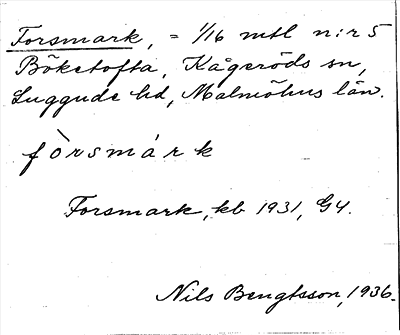 Forsmark, = 1/16 mtl n:r 5
Böketofta, Kågeröds sn,
Luggude hd, Malmöhus län.
fòrsmárk
Forsmark, kb 1931, G4.
Nils Bengtsson, 1936.